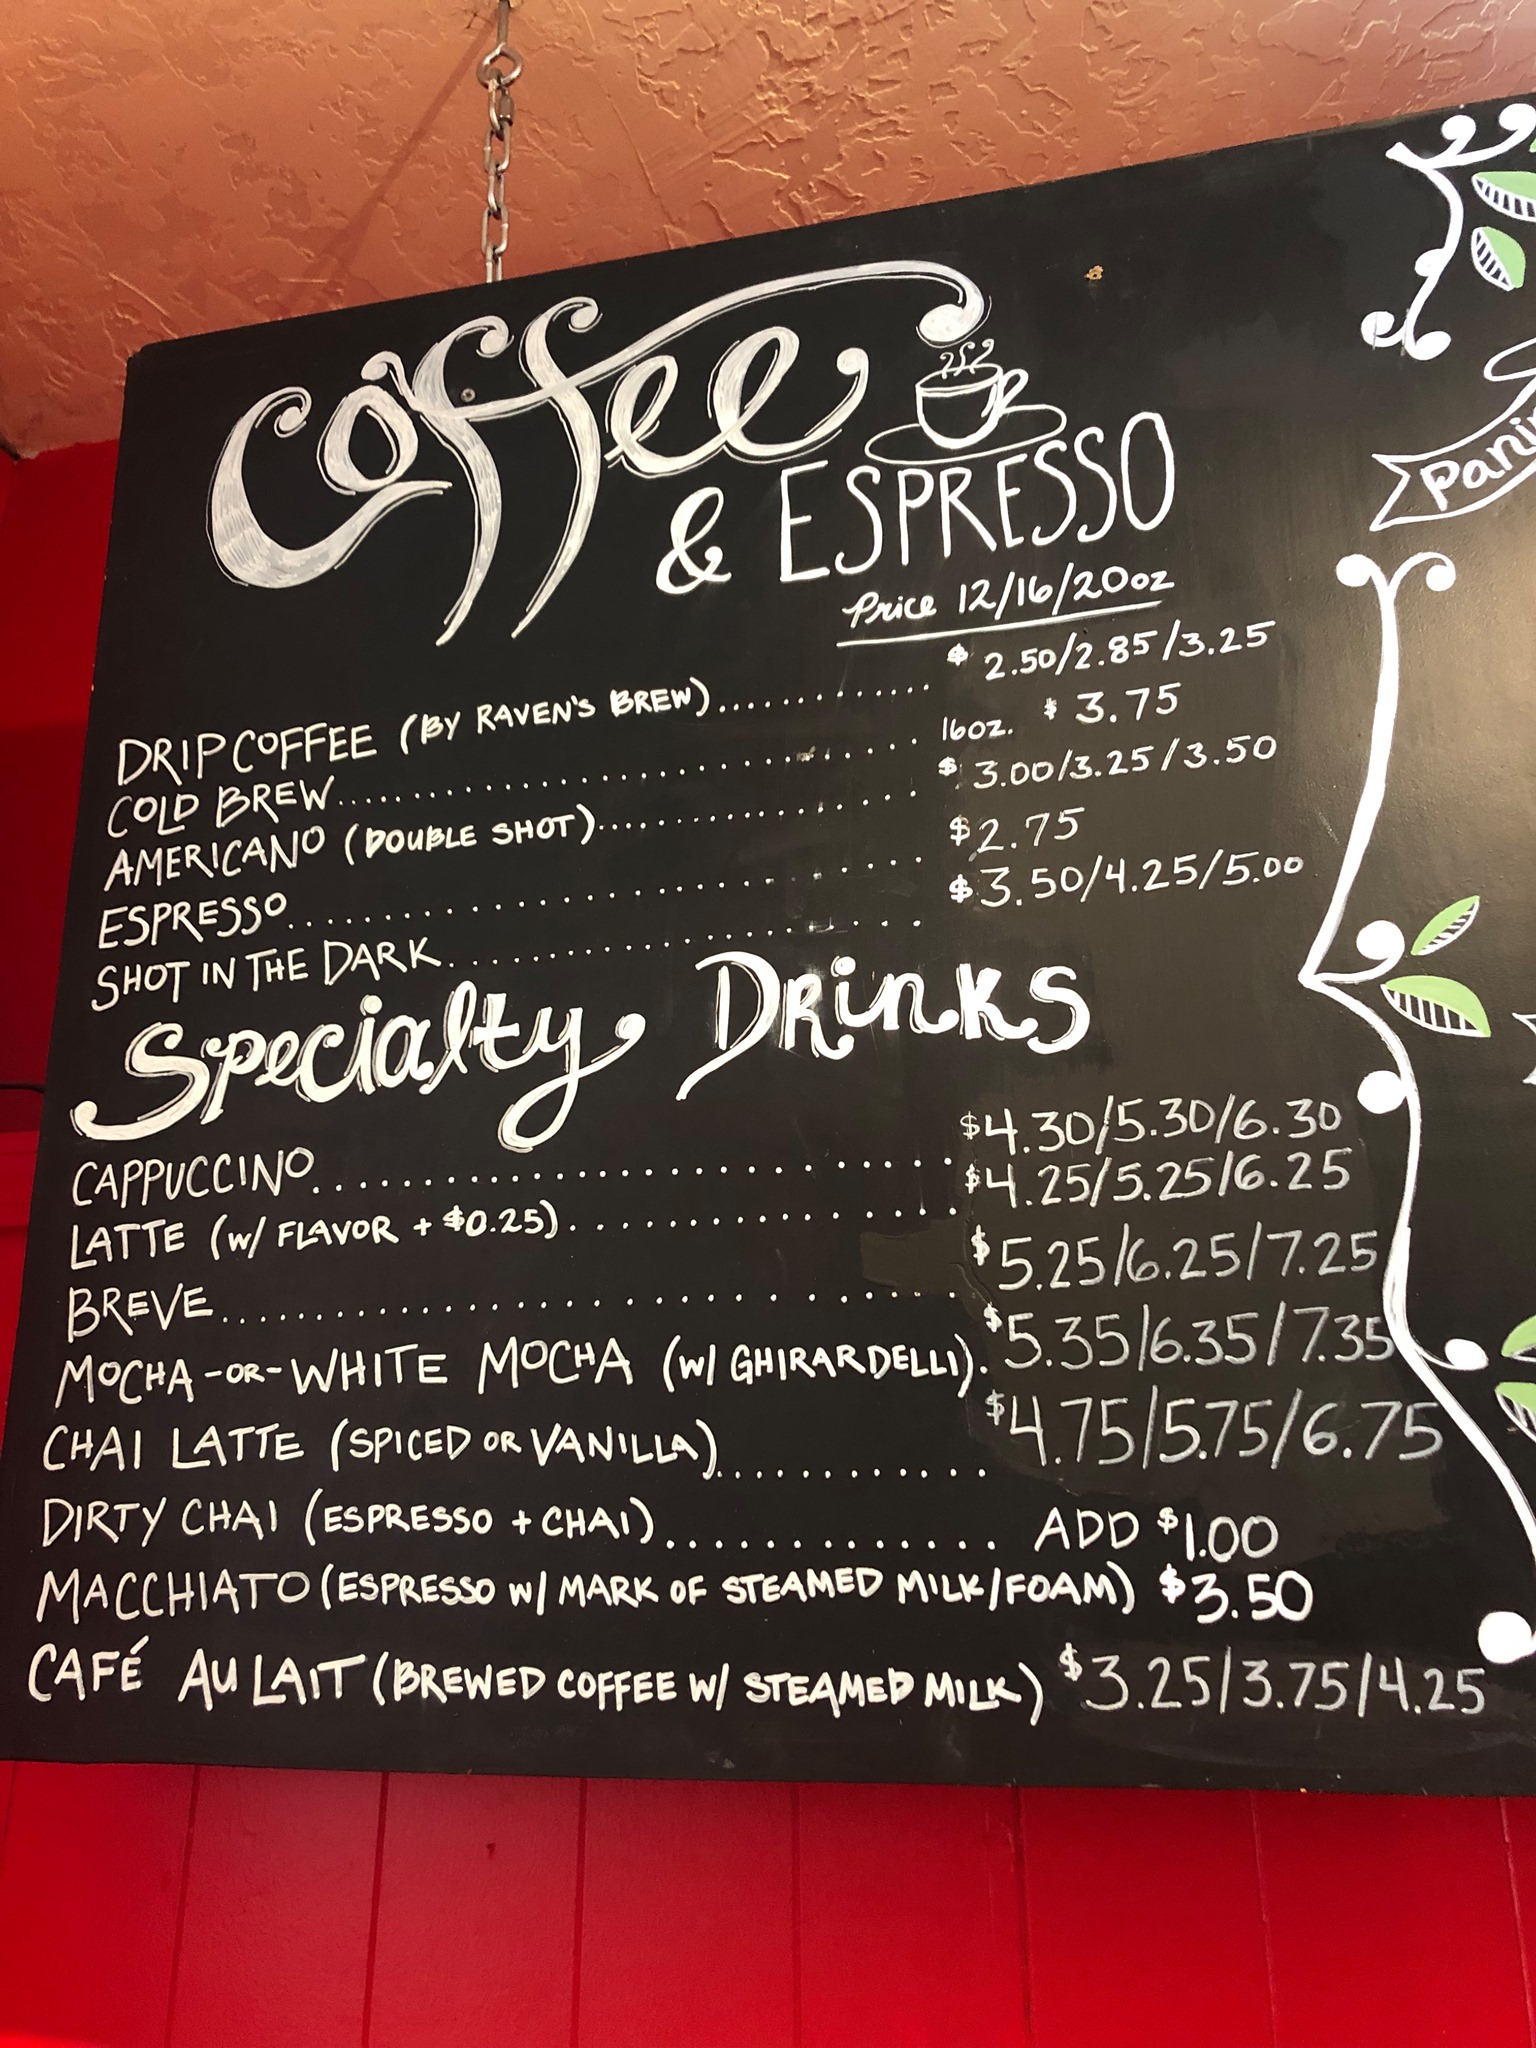 Coffee
& ESPRESSO
Price 12/16/20oz
DRIP COFFEE (BY RAVEN'S BREW)............. $ 2.50/2.85/3.25
COLD BREW............................ 16oz. $ 3.75
AMERICANO (DOUBLE SHOT)................ $ 3.00/3.25/3.50
ESPRESSO............................ $2.75
SHOT IN THE DARK..................... $3.50/4.25/5.00
Specialty Drinks
CAPPUCCINO........................... $4.30/5.30/6.30
LATTE (W/ FLAVOR + $0.25)................ $4.25/5.25/6.25
BREVE............................... $5.25/6.25/7.25
MOCHA -OR- WHITE MOCHA (W/ GHIRARDELLI). $5.35/6.35/7.35
CHAI LATTE (SPICED OR VANILLA)............. $4.75/5.75/6.75
DIRTY CHAI (ESPRESSO + CHAI)............. ADD $1.00
MACCHIATO (ESPRESSO W/ MARK OF STEAMED MILK/FOAM) $3.50
CAFÉ AU LAIT (BREWED COFFEE W/ STEAMED MILK) $3.25/3.75/4.25